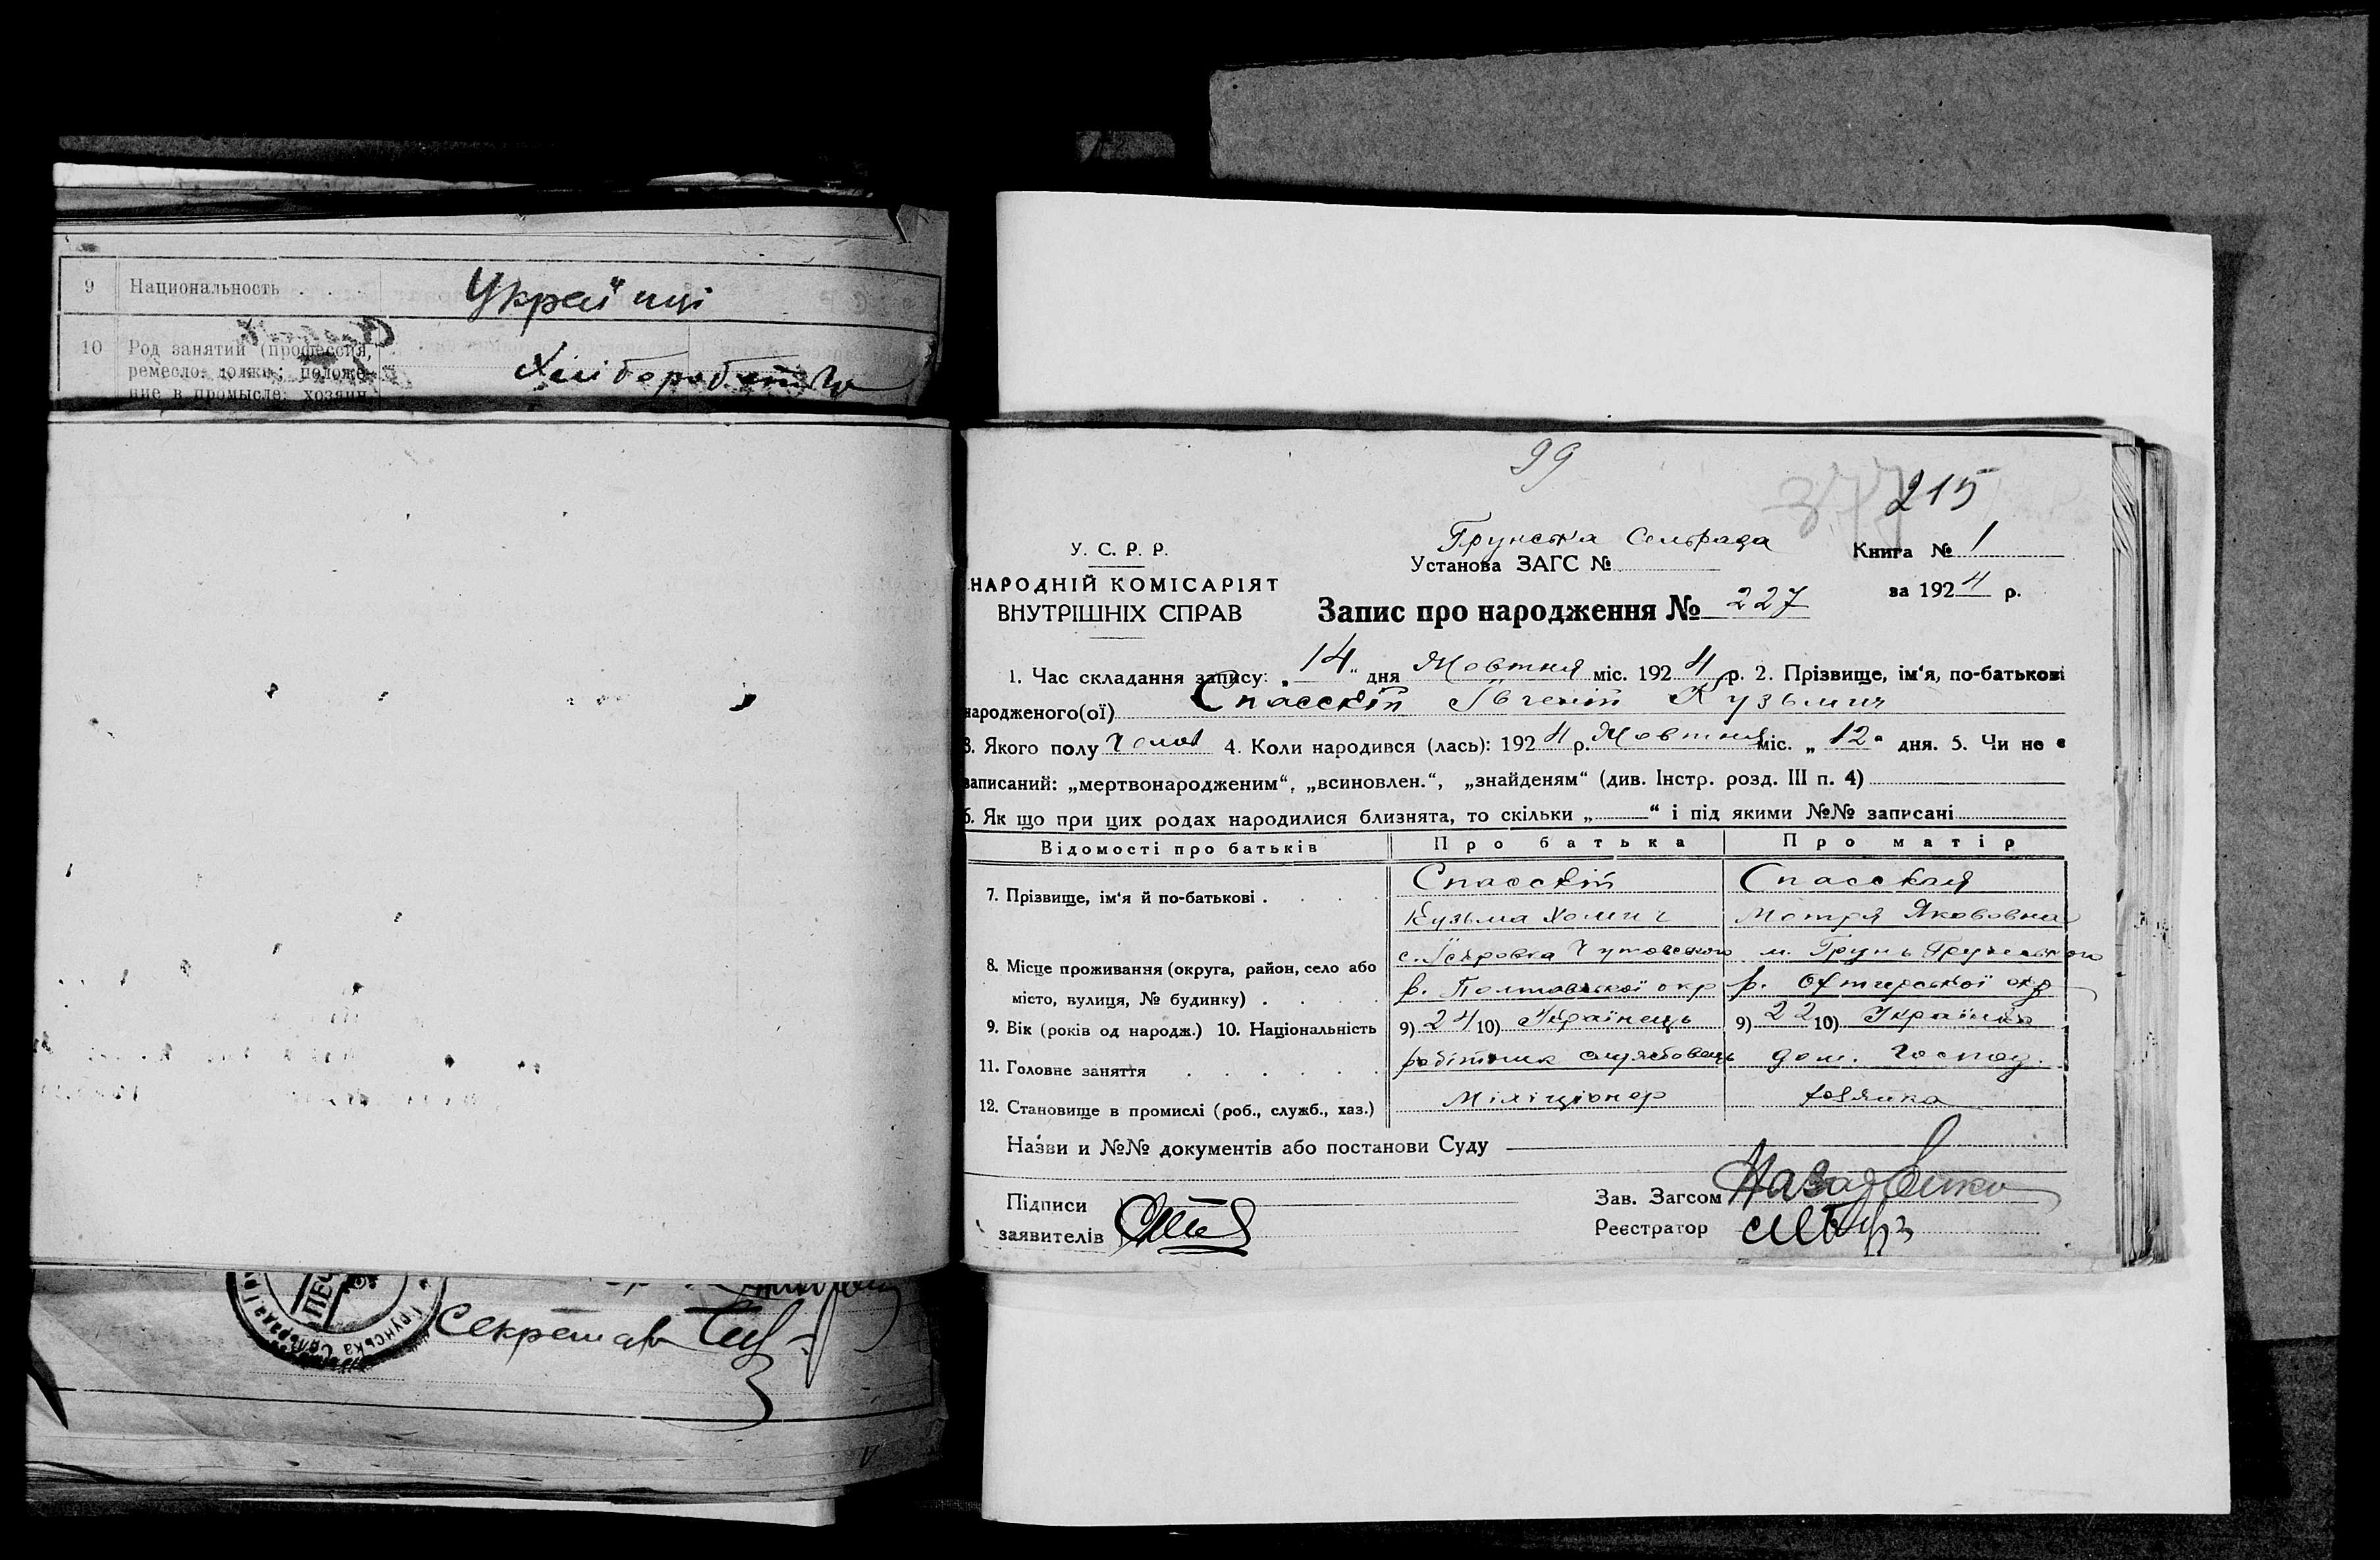 9 Национальность . . . Україnці
10 Род занятий (профессия,
ремесло, должн; положе-
ние в промысле: хозяин,
Хліборобство
Секретар
Грунська Сельрада
99
377 215
У. С. Р. Р.
НАРОДНІЙ КОМІСАРІЯТ
ВНУТРІШНІХ СПРАВ
Грунська Сельрада
Установа ЗАГС №
Книга № 1
за 1924 р.
Запис про народження № 227
1. Час складання запису: „14“ дня Жовтня міс. 1924 р. 2. Прізвище, ім‘я, по-батькові
народженого(ої) Спасскій Євгеній Кузьмич
3. Якого полу Чолов 4. Коли народився (лась): 1924 р. Жовтня міс. „12“ дня. 5. Чи не є
записаний: „мертвонародженим“, „всиновлен.“, „знайденям“ (див. Інстр. розд. III п. 4)
6. Як що при цих родах народилися близнята, то скільки „——“ і під якими №№ записані
Відомості про батьків Про батька Про матір
7. Прізвище, ім‘я й по-батькові . . . . Спасскій Спасская
Кузьма Хомич Мотря Якововна
8. Місце проживання (округа, район, село або
місто, вулиця, № будинку) . . . .
с. Іскровка Чутовського м. Грунь Грунського
р. Полтавської окр р. Охтирської окр
9. Вік (років од народж.) 10. Національність 9) 24 10) Українець 9) 22 10) Українка
11. Головне заняття . . . . . . робітник службовець дом. господ.
12. Становище в промислі (роб., служб., хаз.) Міліціонер хозяйка
Назви и №№ документів або постанови Суду
Підписи
заявителів
Зав. Загсом
Реєстратор